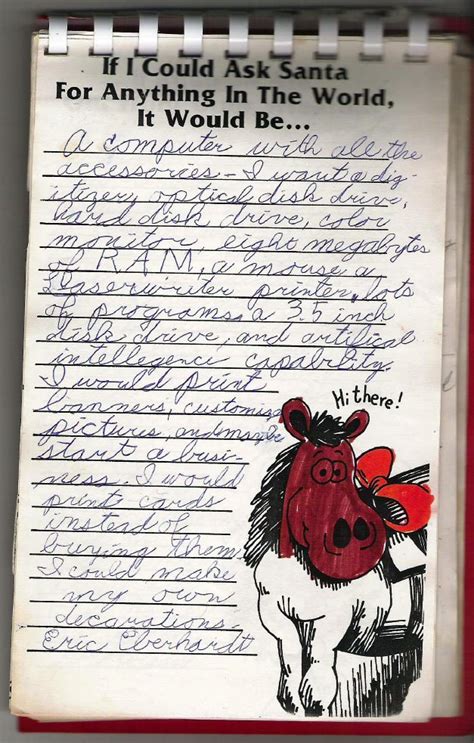 If I Could Ask Santa
For Anything In The World,
It Would Be...
A computer with all the
accessories - I want a dig-
itizer, optical disk drive,
hard disk drive, color
monitor, eight megabytes
of RAM, a mouse, a
Laserwriter printer, lots
of programs, a 3.5 inch
disk drive, and artifical
intellegence capability.
I would print
Hi there!
banners, customize
pictures, and maybe
start a busi-
ness. I would
print cards
instead of
buying them
I could make
my own
decarations.
Eric Eberhardt